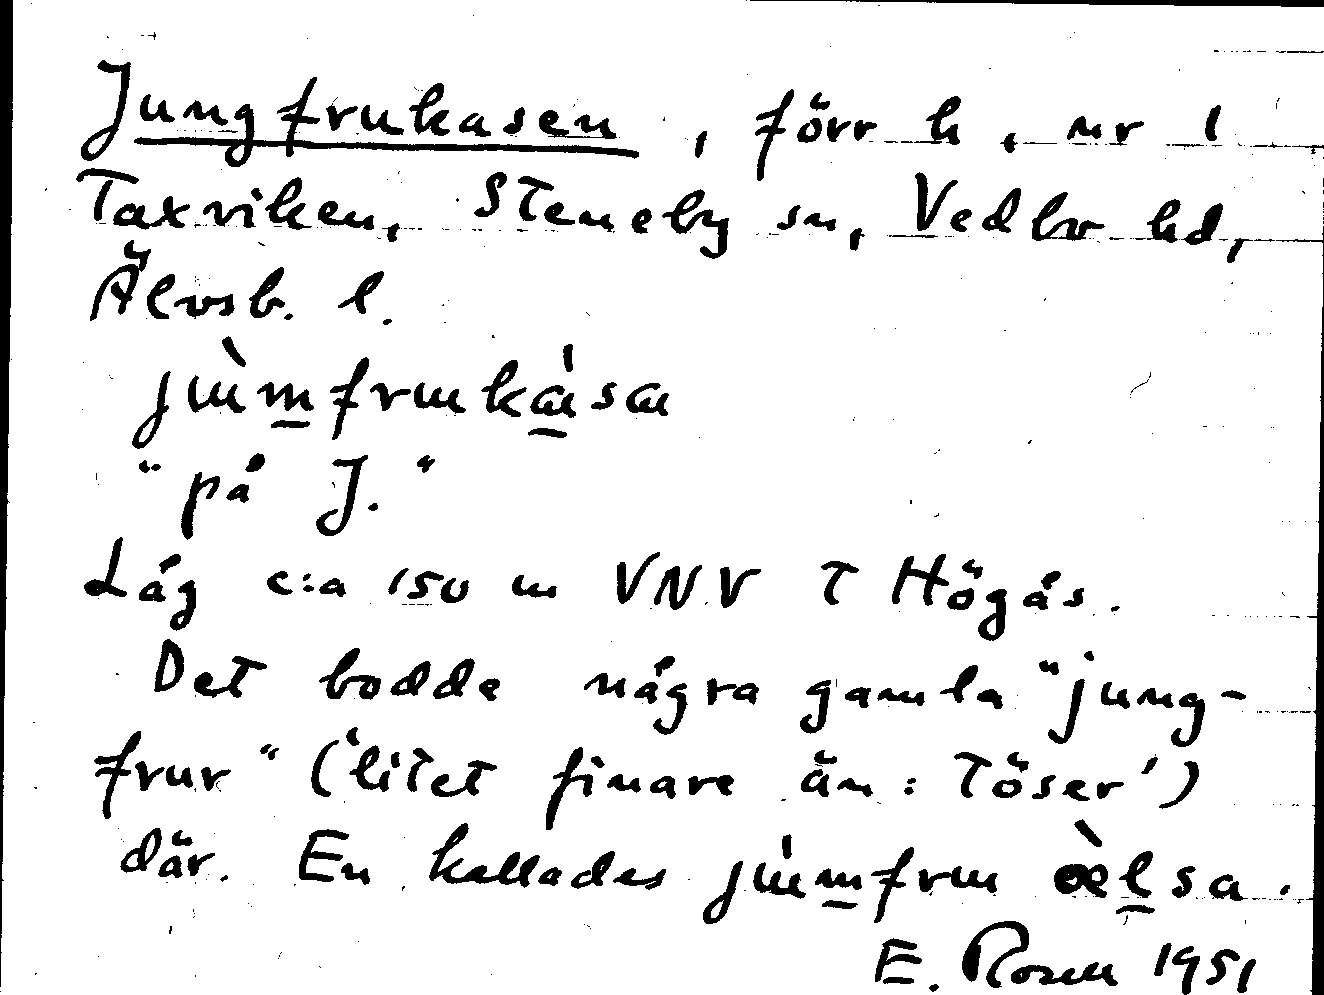 Jungfrukasen, förr h, nr 1
Taxviken, Steneby sn, Vedbo hd,
Älvsb. l.
jɯ̀m̲frɯkɑ̲́sɑ
"på J."
Låg c:a 150 m VNV T Högås.
Det bodde några gamla "jung-
frur" ('litet finare än: töser')
där. En kallades jɯ́m̲frɯ æ̀l̲sa.
E. Rosen 1951